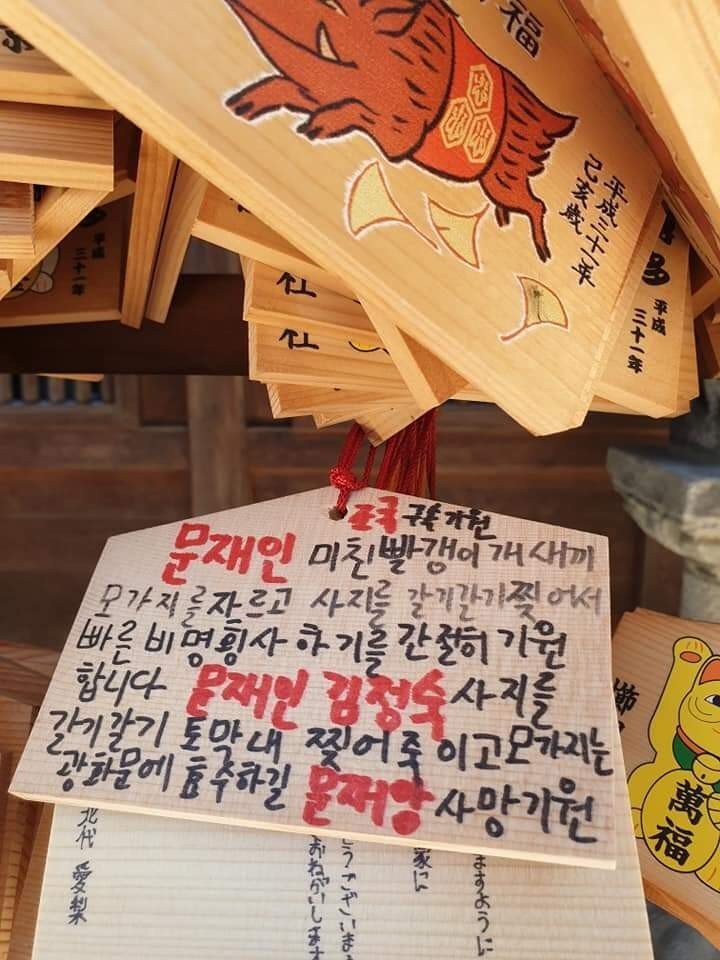 福
平成三十一年
己亥歳
平成
三十一年
平成
三十一年
社
社
조국 구속 기원
문재인 미친 빨갱이 개새끼
모가지를 자르고 사지를 갈기갈기 찢어서
빠른 비명횡사 하기를 간절히 기원
합니다 문재인 김정숙 사지를
갈기갈기 토막내 찢어죽이고 모가지는
광화문에 효수하길 문재앙 사망기원
萬福
ますように
家に
うございま
おねがいしま
北代 愛梨